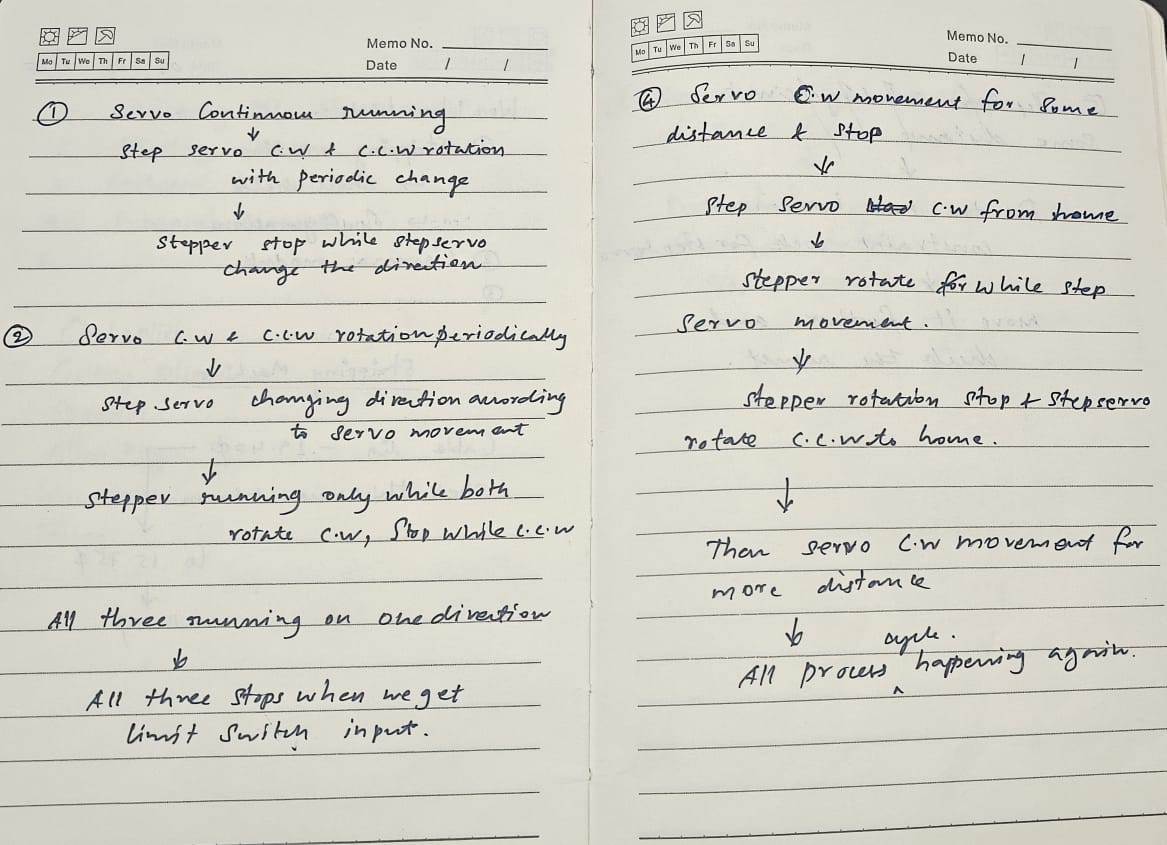 Mo Tu We Th Fr Sa Su
Memo No.
Date / /
① Servo Continuous running
↓
Step servo C.W & C.C.W rotation
with periodic change
↓
Stepper stop while step servo
change the direction
② Servo C.W & C.C.W rotation periodically
↓
Step servo changing direction according
to servo movement
↓
Stepper running only while both
rotate C.W, Stop while C.C.W
All three running on one direction
↓
All three stops when we get
limit switch input.
Mo Tu We Th Fr Sa Su
Memo No.
Date / /
④ Servo C.W movement for some
distance & stop
↓
Step servo C.W from home
↓
Stepper rotate for while step
servo movement.
↓
Stepper rotation stop & step servo
rotate C.C.W to home.
↓
Then servo C.W movement for
more distance
↓
All process cycle. happening again.